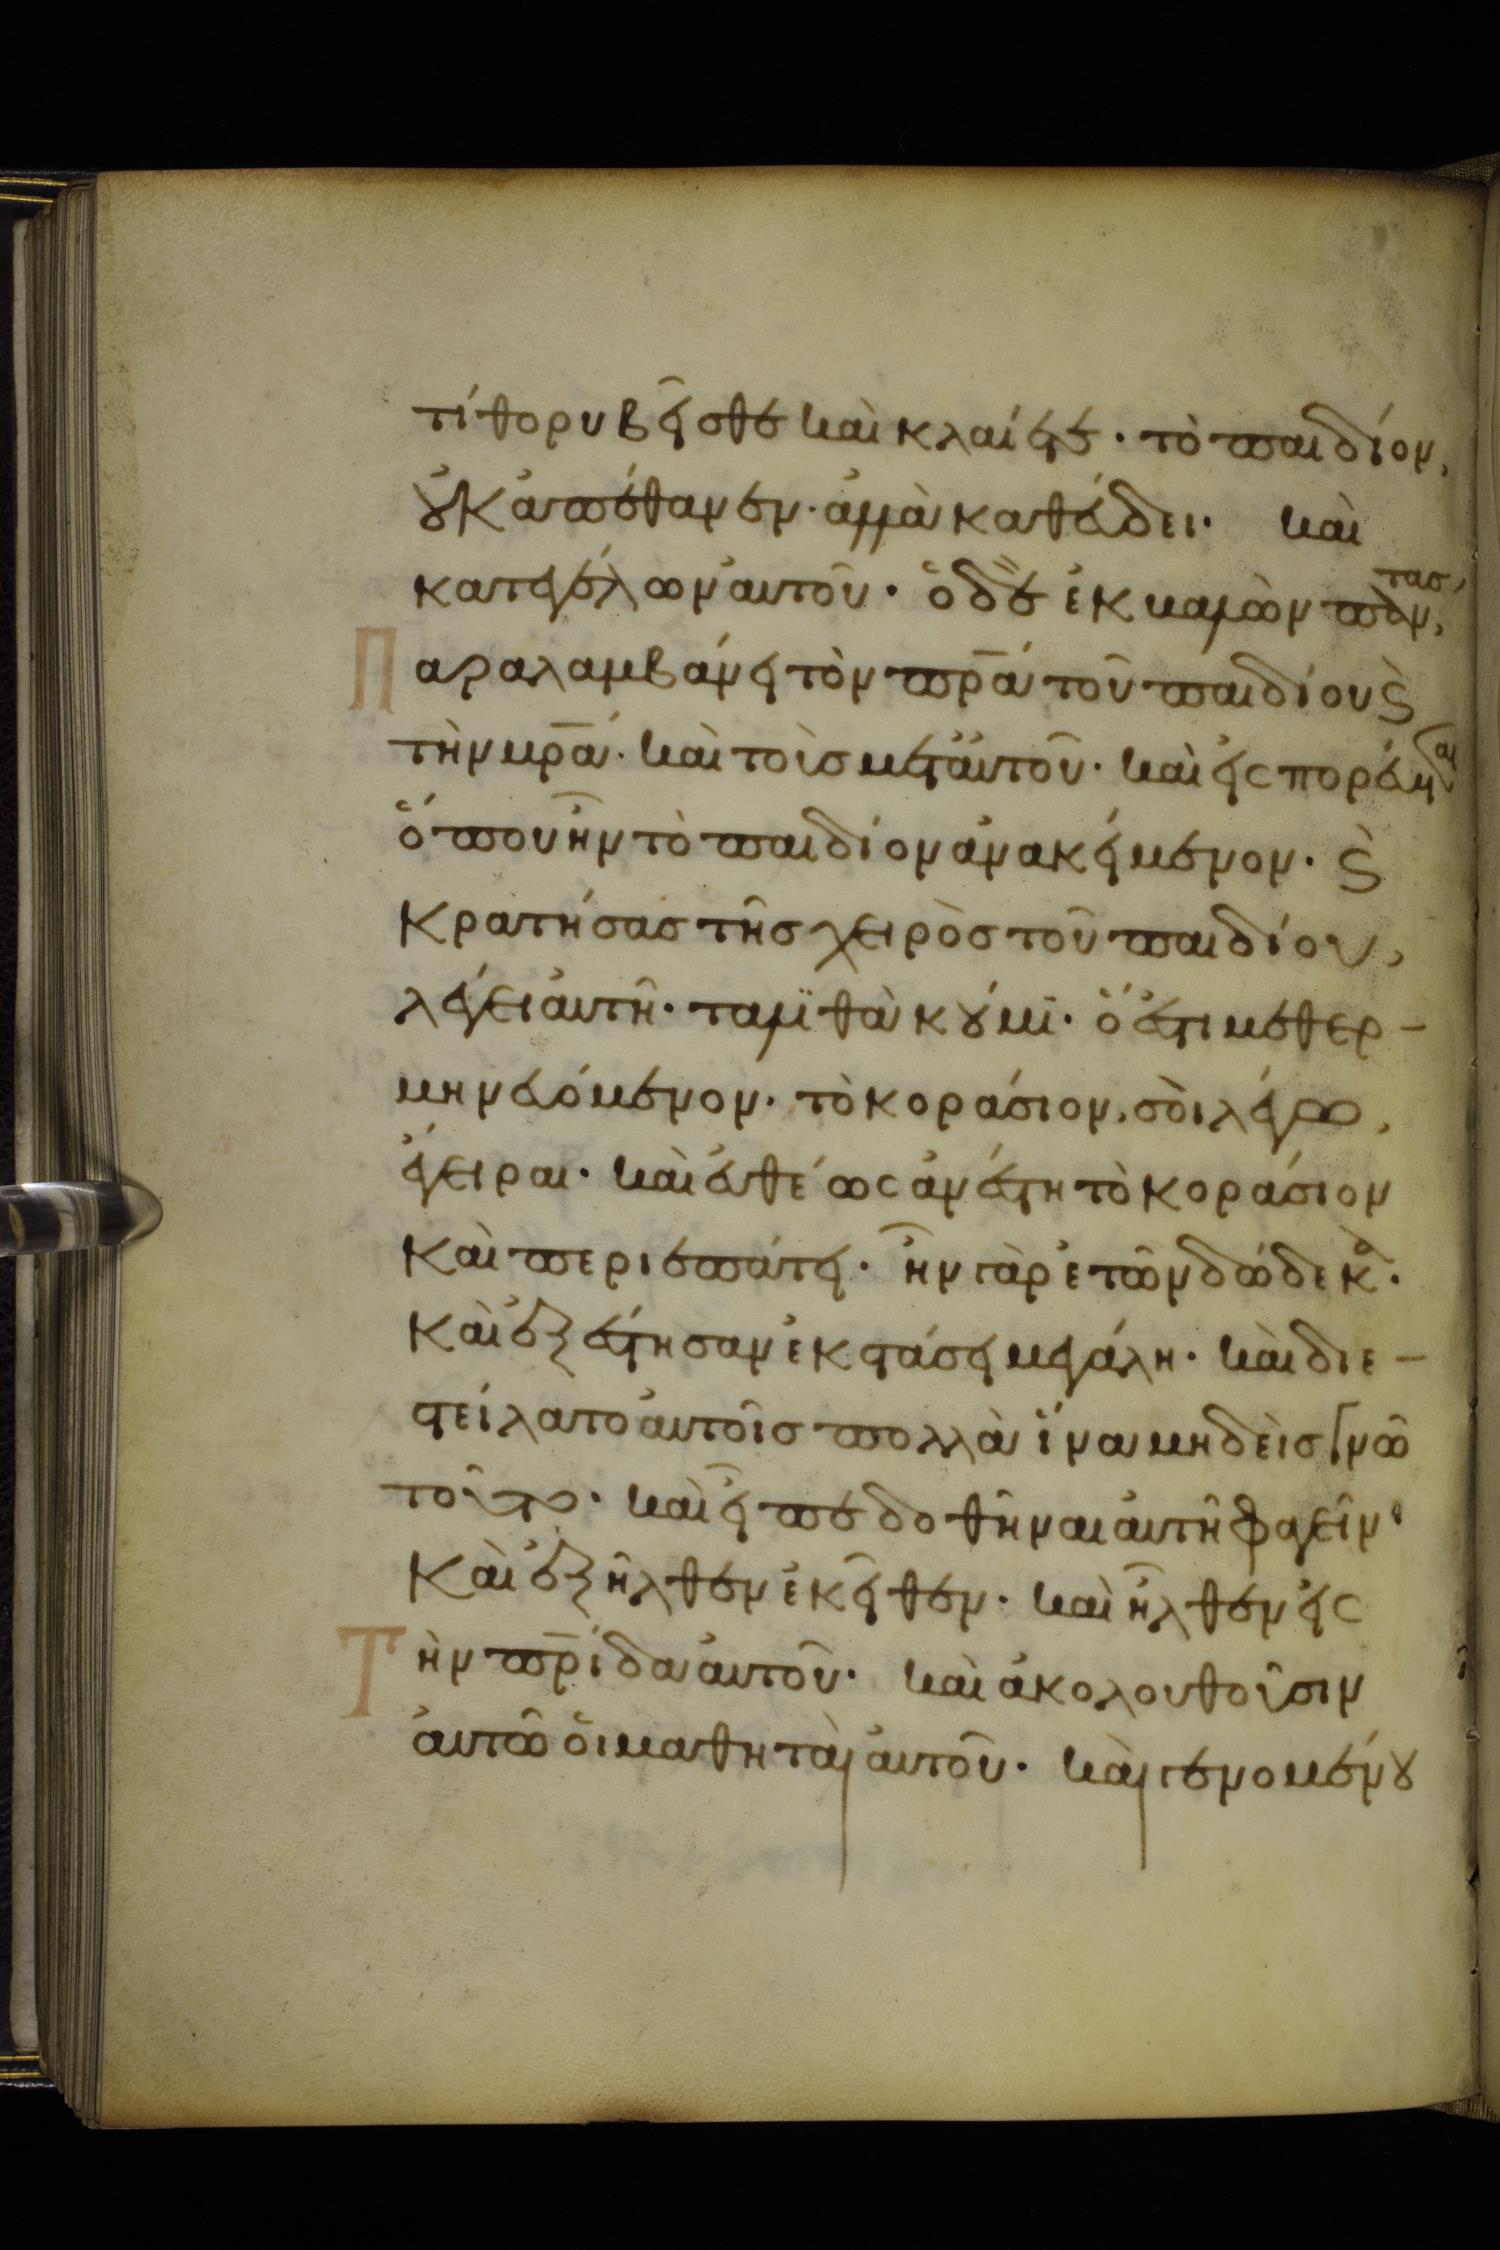 τί θορυβεῖσθε καὶ κλαίετε· τὸ παιδίον,
οὐκ ἀπέθανεν· ἀλλὰ καθεύδει· καὶ
κατεγέλων αὐτοῦ· ὁ δὲ ἐκβαλὼν πάντας,
Παραλαμβάνει τὸν πρ̅α τοῦ παιδίου ϗ
τὴν μρ̅α· καὶ τοὺς μετ' αὐτοῦ· καὶ εἰσπορεύεται
ὅπου ἦν τὸ παιδίον ἀνακείμενον· ϗ
κρατήσας τῆς χειρὸς τοῦ παιδίου,
λέγει αὐτῆ· ταλιθὰ κούμι· ὅ ἐστι μεθερ-
μηνευόμενον· τὸ κοράσιον, σοὶ λέγω,
ἔγειραι· καὶ εὐθέως ἀνέστη τὸ κοράσιον
καὶ περιεπάτει· ἦν γὰρ ἐτῶν δώδεκα·
καὶ ἐξέστησαν ἐκστάσει μεγάλη· καὶ διε-
στείλατο αὐτοῖς πολλὰ ἵνα μηδεὶς γνῶ
τοῦτο· καὶ εἶπε δοθῆναι αὐτῆ φαγεῖν·
Καὶ ἐξῆλθεν ἐκεῖθεν· καὶ ἦλθεν εἰς
Τὴν πρ̅ίδα αὐτοῦ· καὶ ἀκολουθοῦσιν
αὐτῶ οἱ μαθηταὶ αὐτοῦ· καὶ γενομένου